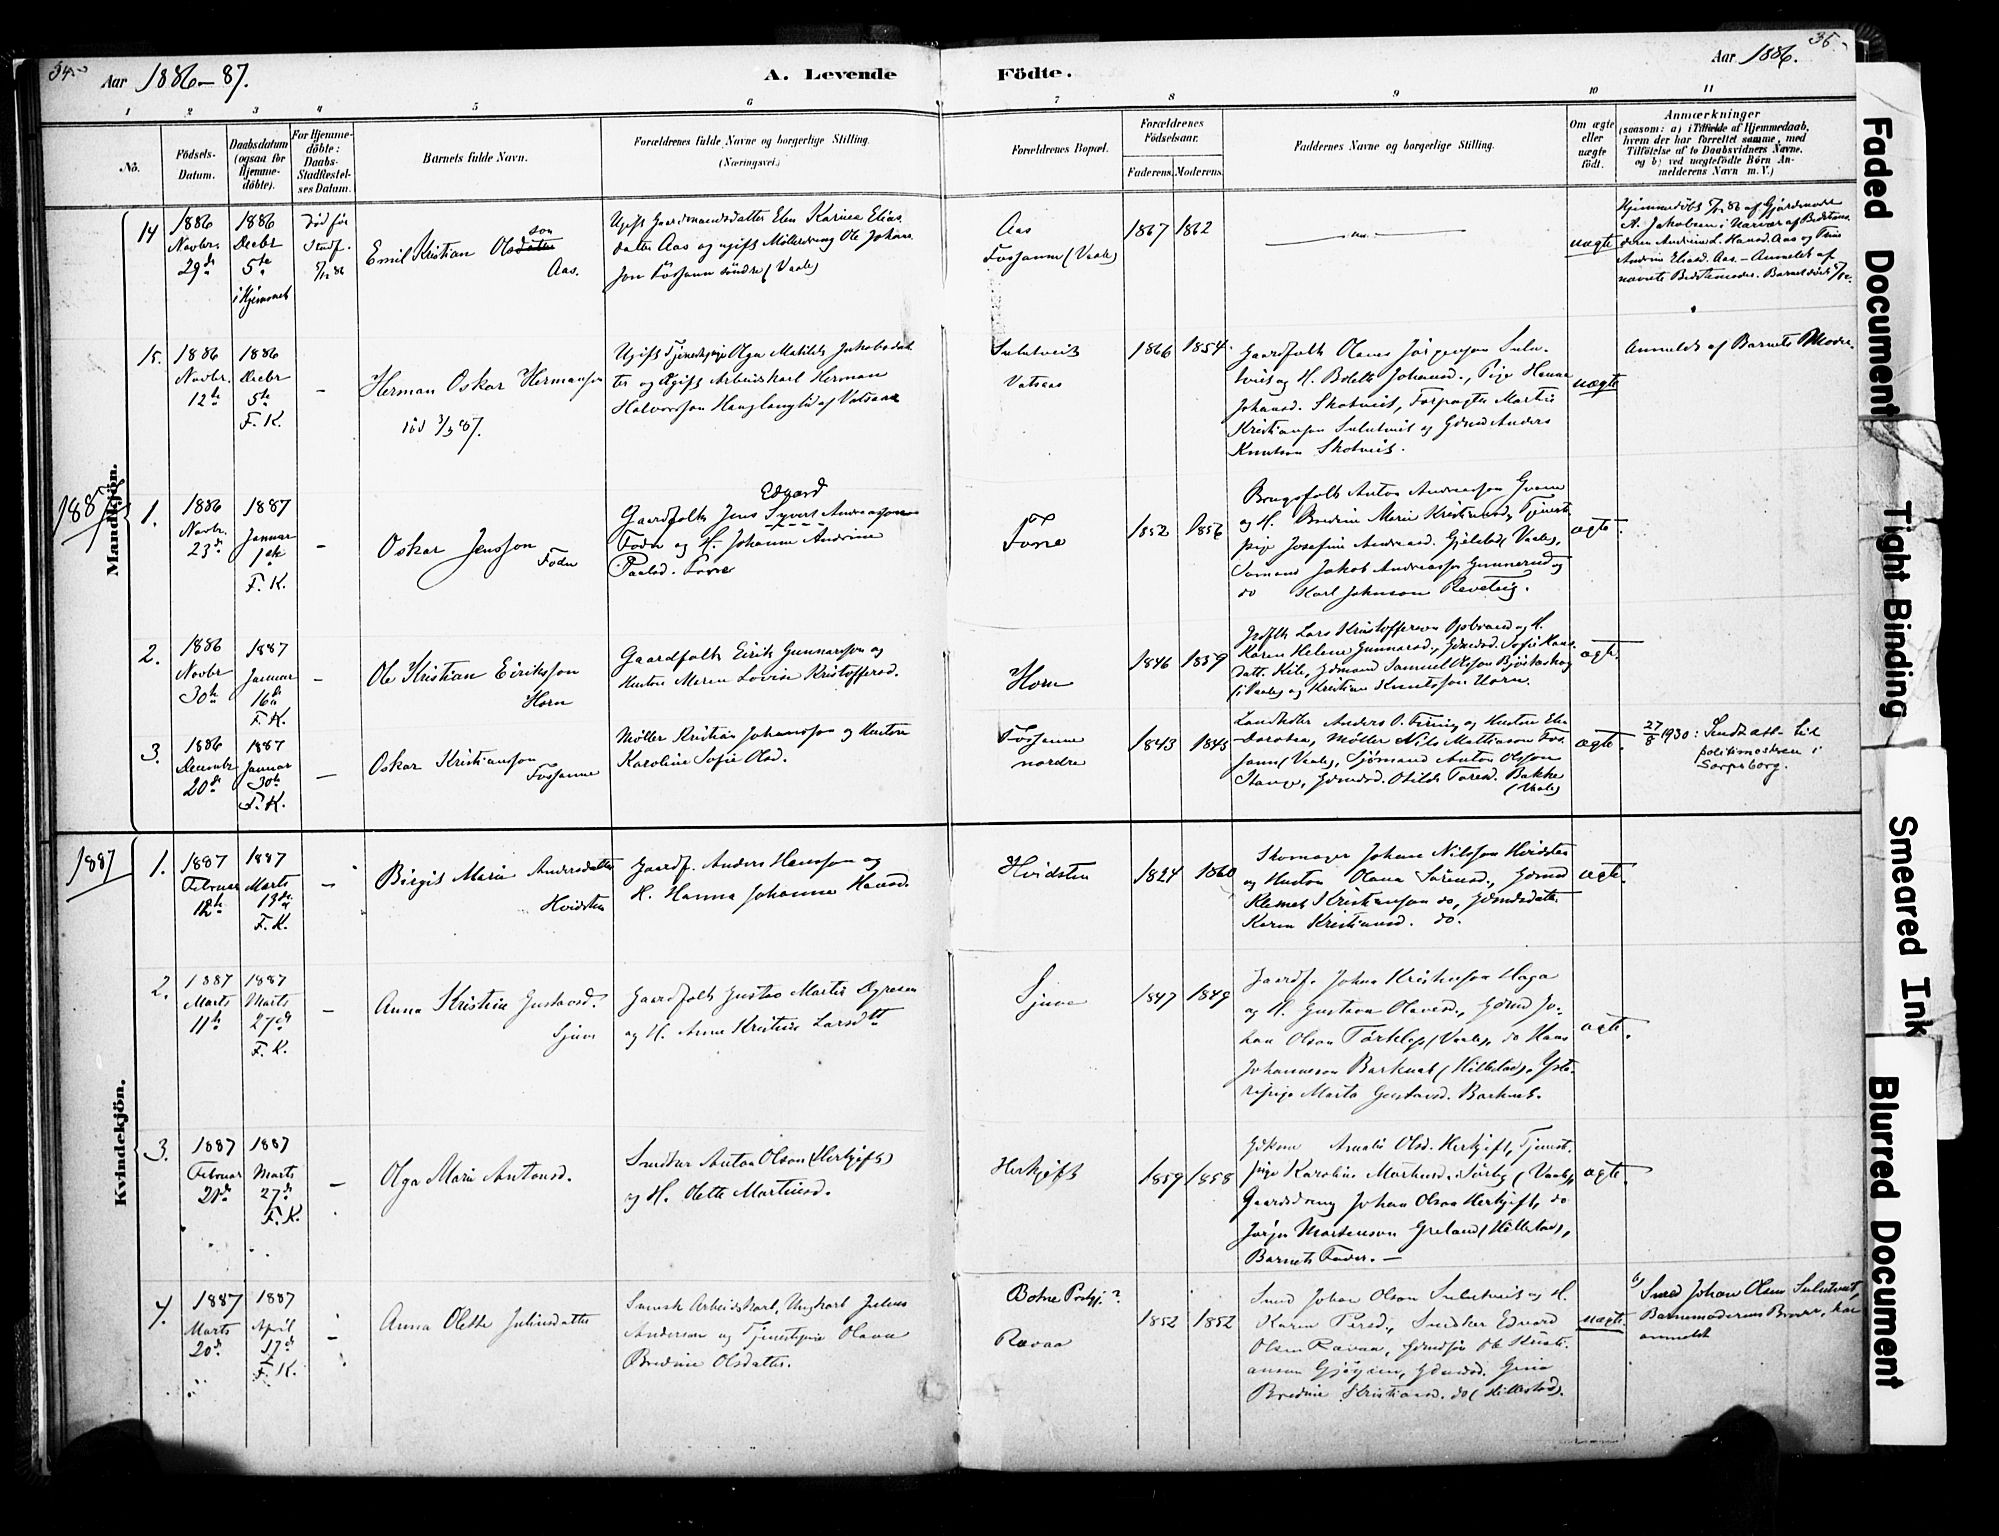 34.
Aar 1886-87.
A. Levende
Födte.
Aar 1886.
35.
1 2 3 4 5 6 7 8 9 10 11
No.
Födsels-
Datum.
Daabsdatum
(ogsaa for
Hjemme-
döbte).
For Hjemme-
döbte:
Daabs-
Stadfæstel-
ses Datum.
Barnets fulde Navn.
Forældrenes fulde Navne og borgerlige Stilling.
(Næringsvei.)
Forældrenes Bopæl.
Forældrenes
Födselsaar.
Faderens. Moderens.
Faddernes Navne og borgerlige Stilling.
Om ægte
eller
uægte
födt.
Anmærkninger
(saasom: a) i Tilfælde af Hjemmedaab,
hvem der har forrettet samme, med
Tilföielse af to Daabsvidners Navne,
og b) ved uægtefödte Börn An-
melderens Navn m. V.)
Mandkjön.
14
1886
Novbr
29de
1886
Decbr
5te
i Hjemmet
Död før
Stadf.
Emil Kristian Olsdatter son
Aas.
Ugift Gaardmandsdatter Elen Karine Elias
datter Aas og ugift Møllerdreng Ole Johans
son Fossanne söndre (Vaale)
Aas
Fossanne (Vaale)
1867 1862
uægte
Hjemmedöbt
15.
1886
Novbr.
12te
1886
Decbr
5te
F. K.
-
Herman Oskar Hermanson
död 3/3 87.
Ugift Tjenestepige Olga Matilde Jakobsdat
ter og Ugift Arbeidskarl Herman
Halvorsson Hauglanglid af Vatsaas
Sulutveit
Vatsaas
1866 1854.
Gaardfolk Olaves Jörgenson Sulu-
tveit og H. Bolette Johansd., Pige Hanna
Johansd. Skotveit, Forpagter Martin
Kristianson Sulutveit og Gdmd Anders
Knutson Skotveit.
uægte
Anmeldt af Barnets Moder.
1887
1.
1886
Novbr.
23de
1887
Januar
1ste
F. K.
-
Oskar Jensson
Foder
Edvard
Gaardfolk Jens Syvert Andreasson
Foder og H. Johanne Andrine
Paulsd. Forre
Forre
1852 1856
Brugsfolk Anton Andreasson
og H. Bredine Marie Kristiansd., Tjeneste
pige Josefine Andreasd. Gjelstad (Vaale),
Sömand Jakob Andreasson Gunnerud og
do Karl Johnson Reveteig.
ægte.
2.
1886
Novbr
30te
1887
Januar
16de
F. K.
-
Ole Kristian Eirikson
Horn
Gaardfolk Eirik Gunnarsson og
Hustru Maren Lovise Kristoffersd.
Horn
1846 1859
Karen Helene Gunnarsd., Gdmdsd. Sofie Hans
datt. Kile, Gdmand Samuel Olsson
(i Vaale) og Kristian Knutsson Horn.
ægte.
3.
1886
Decembr
20de
1887
Januar
30te
F. K.
-
Oskar Kristianson
Fossanne
Møller Kristian Johansson og Hustru
Karoline Sofie Olsd.
Fossanne
nordre
1843 1845
Landhdlr Anders O. Firing og Hustru Elen
Dorothea, Møller Nils Mathiason Fos
sann (Vaale), Sjömand Anton Olsson
Stange, Gdmdsd. Otilde Toresd. Bakke
(Vaale)
ægte.
27/8 1930: Sendt att. til
politimesteren i
Sarpsborg.
Kvindekjön.
1887
1.
1887
Februar
12te
1887
Marts
13de
F. K.
-
Birgit Marie Andersdatter
Hvidsten
Gaardf. Anders Hansson og
H. Hanna Johanne Hansd.
Hvidsten
1824 1860
Skomager Johan Nilsson Hvidsten
og Hustru Olava Sörensd., Gdmd
Klemet Kristianson do, Gdmdsdatt.
Karen Kristiansd. do.
ægte.
2.
1887
Marts
11te
1887
Marts
27de
F. K.
-
Anna Kristine Gustavsd.
Sjue
Gaardfolk Gustav Martin
og H. Anne Kristine Larsdtt
Sjue
1847 1849
Gaardf. Johan Kristenson Haga
og H. Gustava Olavesd., Gdmd Jo-
han Olson Törklep (Vaale), do Hans
Johanneson Barknes (Hillestad),
Marta Gustavsd. Barknes.
ægte.
3.
1887
Februar
20de
1887
Marts
27de
F. K.
-
Olga Marie Antonsd.
Snedker Anton Olson (Herkjift)
og H. Olette Martinsd.
Herkjift
1859 1858
Amalie Olsd. Herkjift, Tjenest-
pige Karoline Martinsd. Sörby (Vaale),
Gaardsdreng Johan Olson Herkjift, do
Jörgen Martenson Greland (Hillestad),
Barnets Fader. -
ægte.
4.
1887
Marts
20de
1887
April
17de
F. K.
-
Anna Olette Juliusdatter
Svensk Arbeidskarl, Ungkarl Julius
Anderson og Tjenestpige Olava
Bredine Olsdatter.
Botne Prestgj.?
Ravaa
1852 1852
Smed Johan Olson Sulutveit og H.
Karen Persd., Snedker Edvard
Olsen Ravaa, Gdmdsön Ole Kristi-
anson Gjögein, Gdmdsd. Gina
Bredine Kristiansd. do (Hillestad).
uægte.
b) Smed Johan Olson Sulutveit,
Barnemoderens Broder, har
anmeldt
Faded Document
Tight Binding
Smeared Ink
Blurred Document